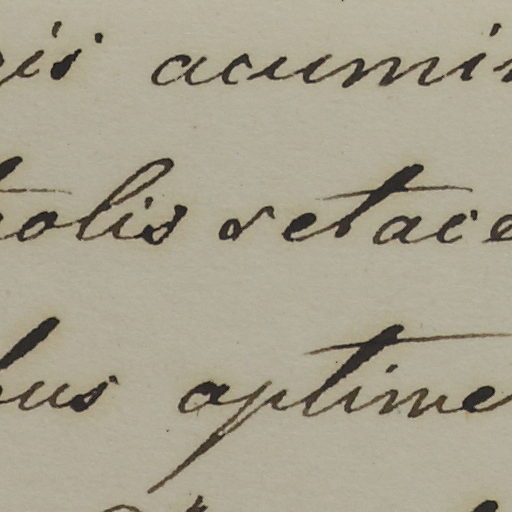 acumin
olis setace
bus optime